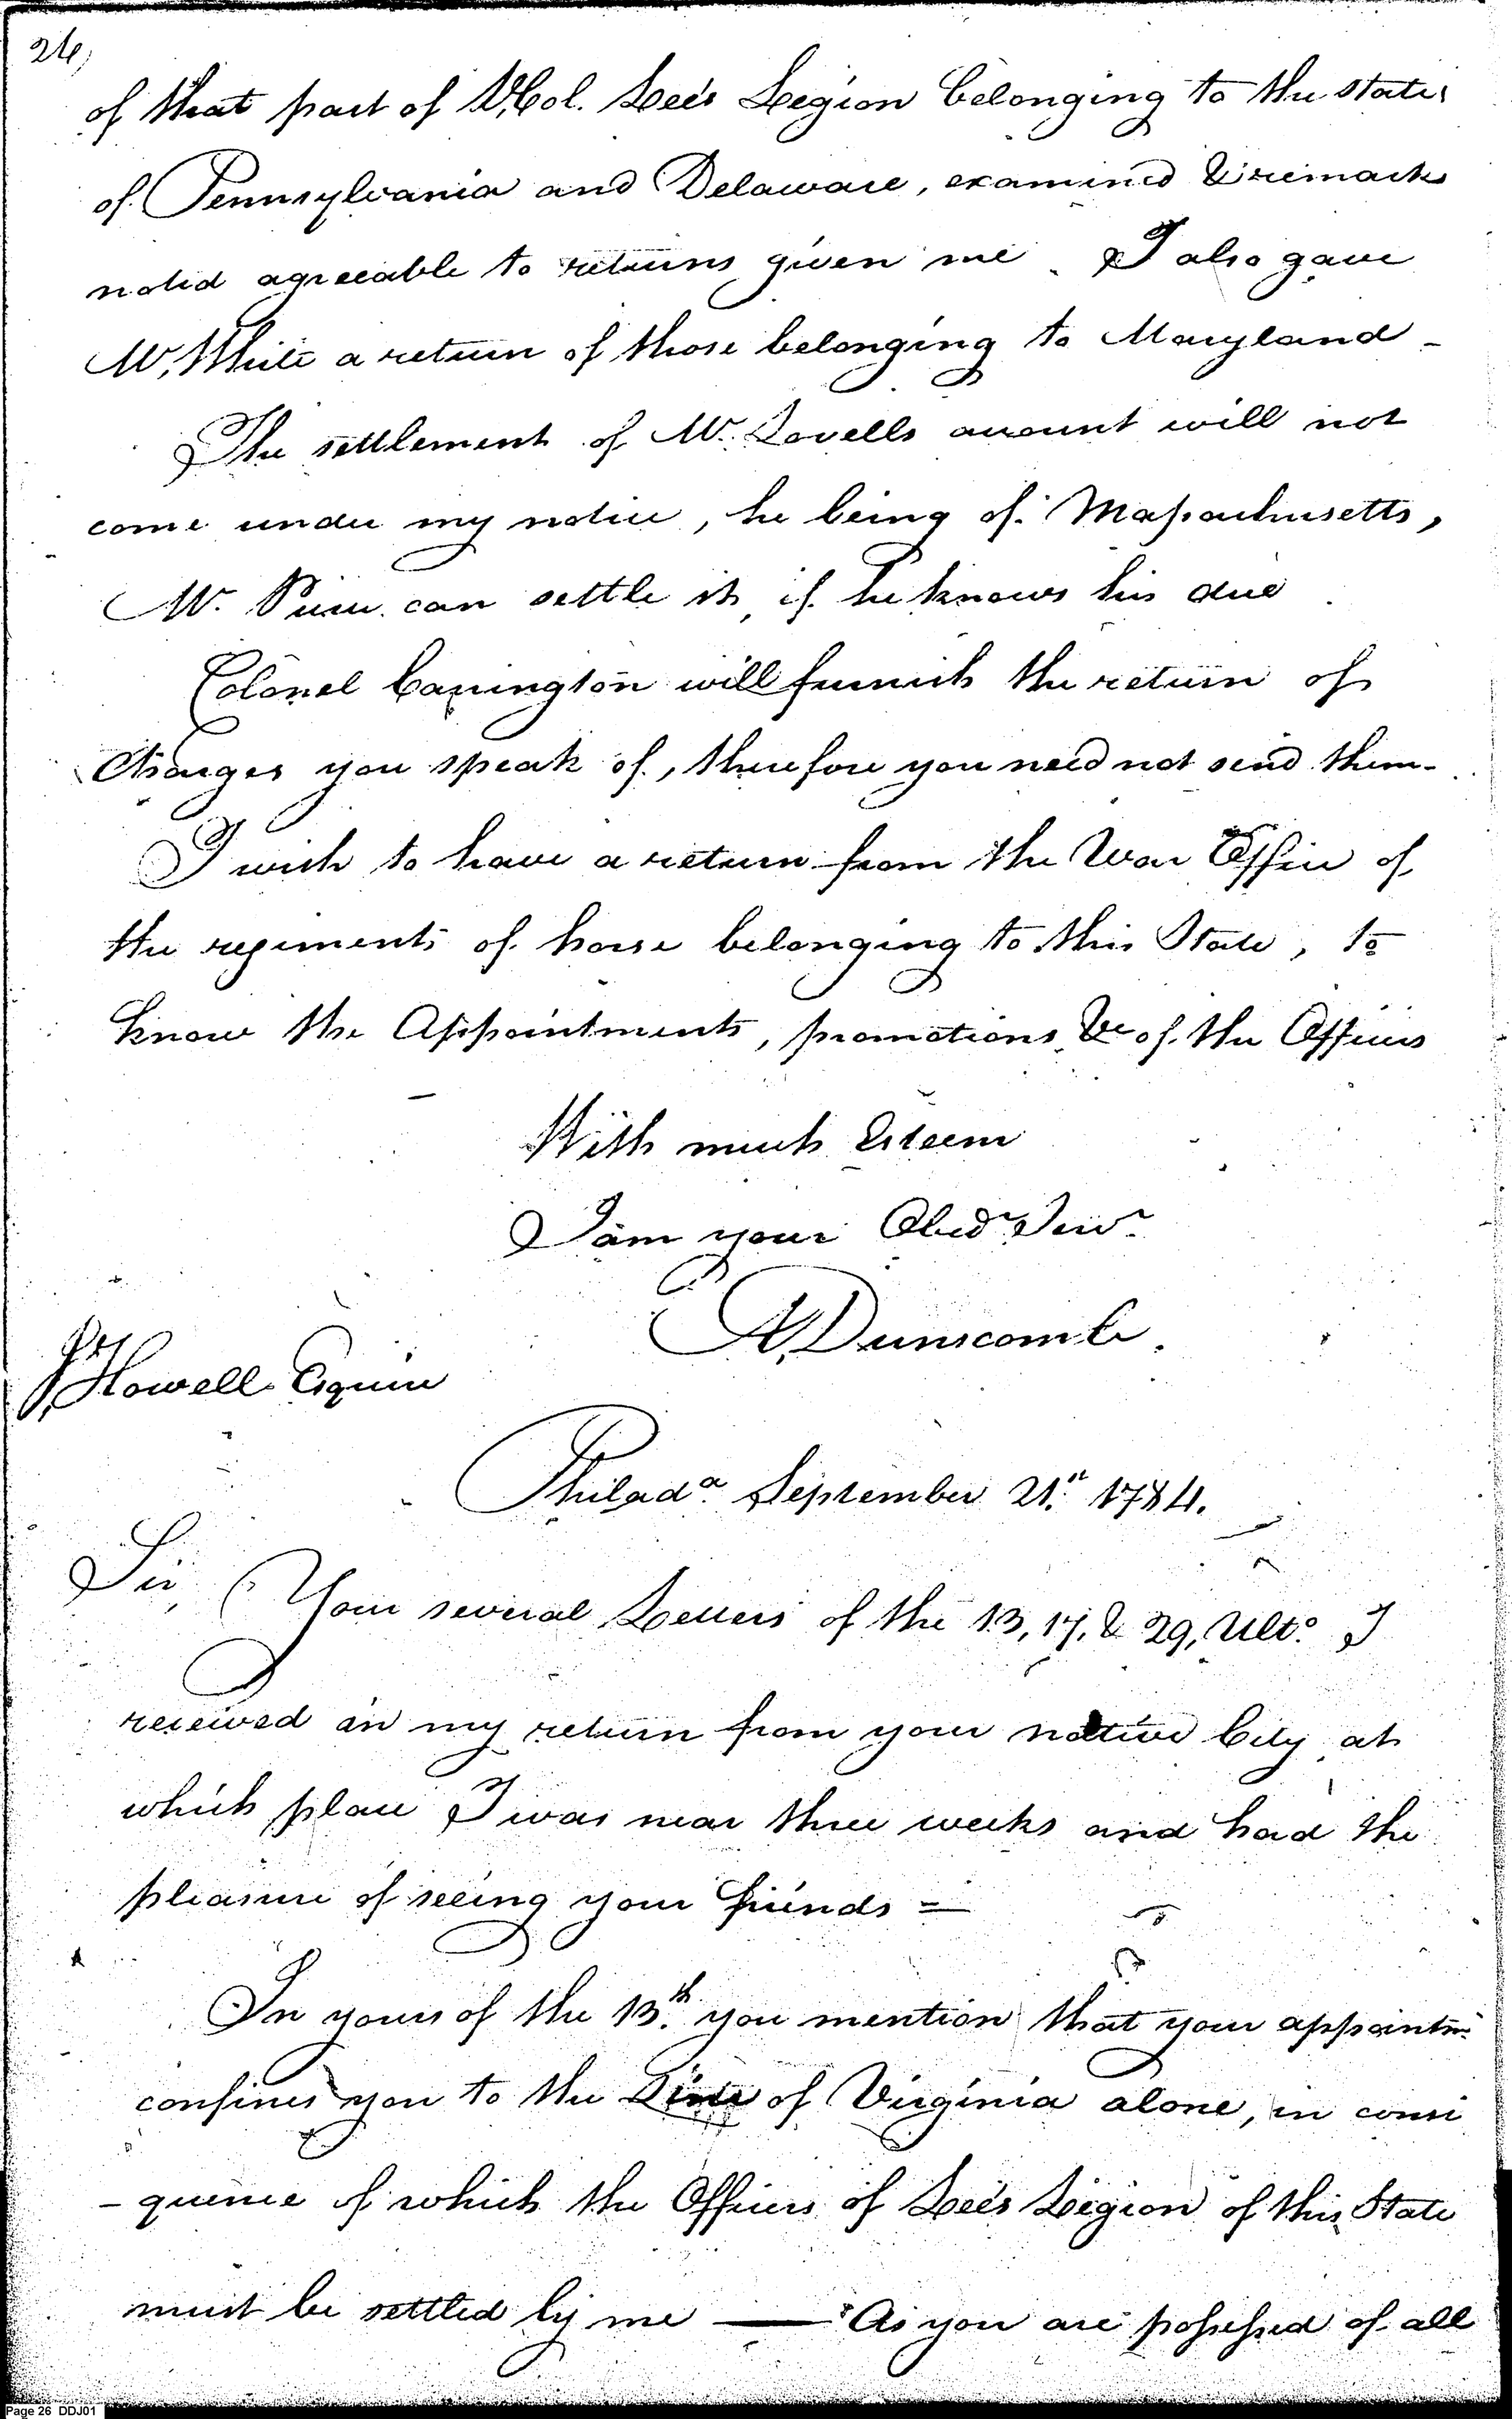 26,
of that part of Lt. Col. Lee's Legion belonging to the states
of Pennsylvania and Delaware, examined & remarks
noted agreeable to returns given me. I also gave
Mr. White a return of those belonging to Maryland -
The settlement of Mr. Lovells account will not
come under my notice, he being of Massachusetts,
Mr. can settle it, if he knows his due.
Colonel Carrington will furnish the return of
Charges you speak of, therefore you need not send them -
I wish to have a return from the War Office of
the regiments of horse belonging to this State, to
know the Appointments, promotions &c of the Officers
With much Esteem
I am your Obedt. Servt.
A, Dunscomb.
J, Howell Esquire
Philada. September 21st. 1784.
Sir, Your several Letters of the 13, 17, & 29, Ulto. I
received on my return from your native City at
which place I was near three weeks and had the
pleasure of seeing your friends =
In yours of the 13th. you mention that your appointmt.
confines you to the Line of Virginia alone, in conse
- quence of which the Officers of Lee's Legion of this State
must be settled by me — As you are possessed of all
Page 26 DDJ01